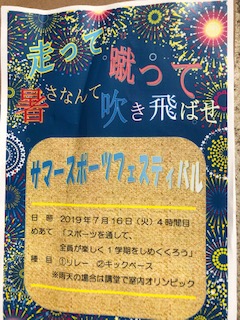 走って
蹴って
暑さなんて
吹き飛ばせ
サマースポーツフェスティバル
日時 2019年7月16日(火)4時間目
めあて 「スポーツを通して、
全員が楽しく1学期をしめくくろう」
種目 ①リレー ②キックベース
※雨天の場合は講堂で室内オリンピック